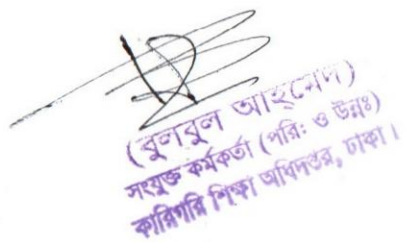 (বুলবুল আহমেদ)
সংযুক্ত কর্মকর্তা (পরি: ও উন্নঃ)
কারিগরি শিক্ষা অধিদপ্তর, ঢাকা।